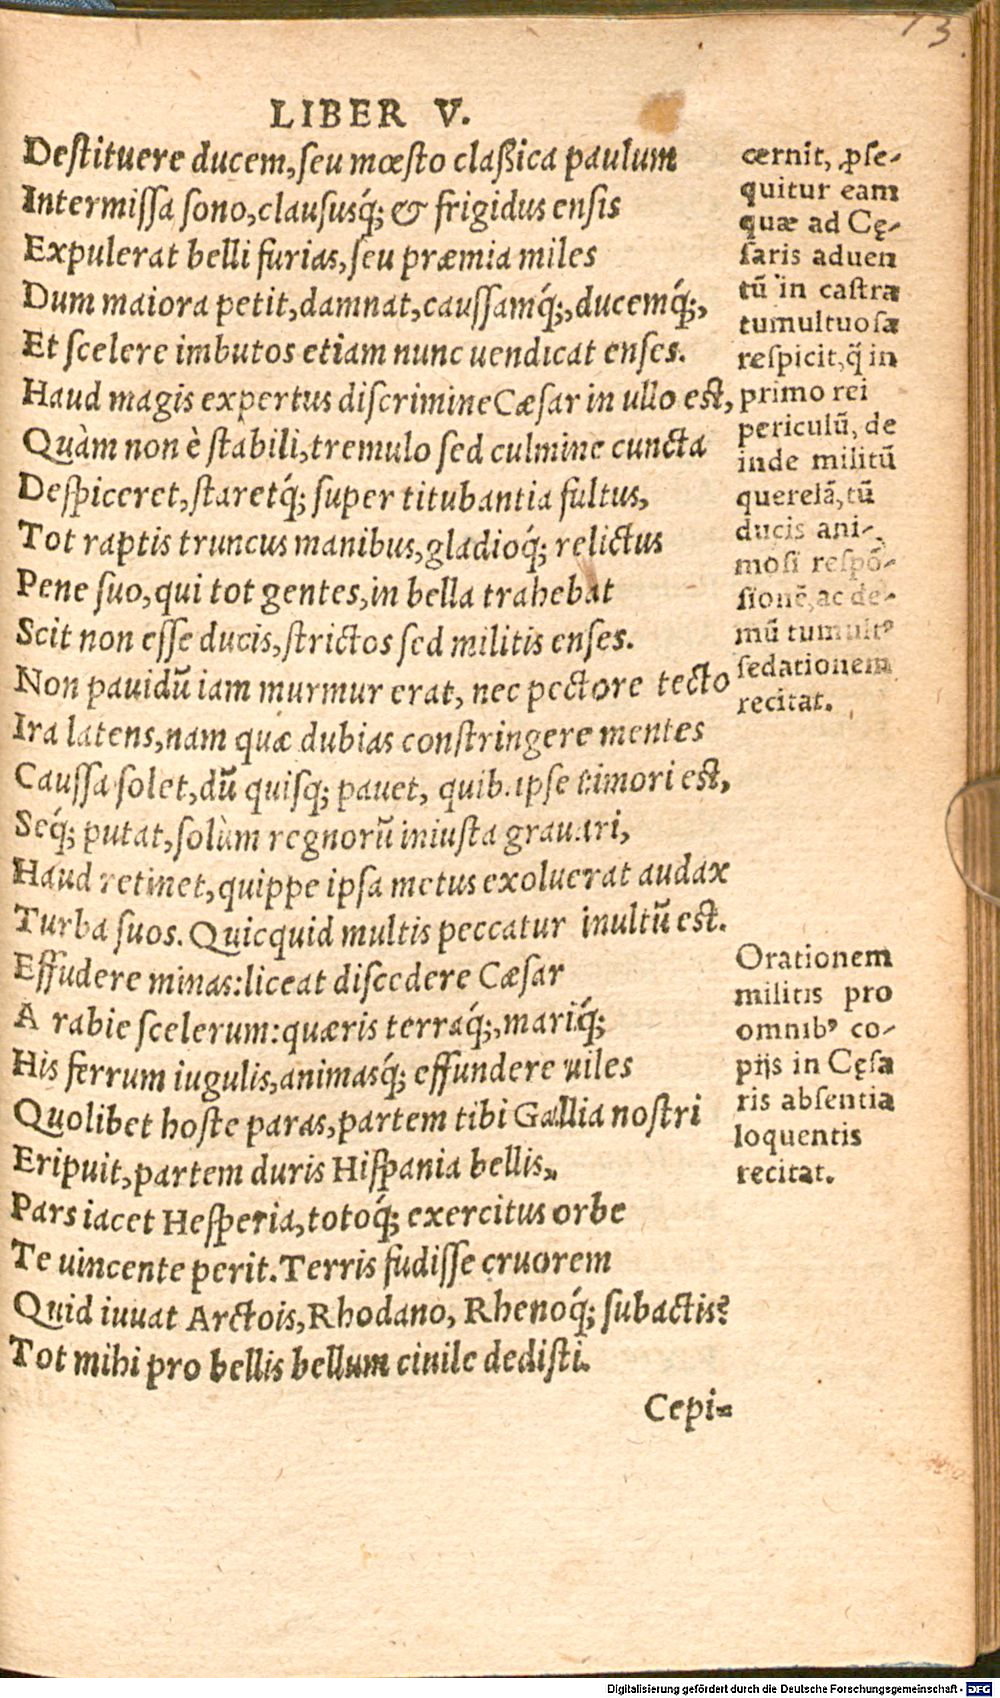 73.
LIBER V.
Destituere ducem, seu mœsto claßica paulum
Intermissa sono, claususq́; & frigidus ensis
Expulerat belli furias, seu præmia miles
Dum maiora petit, damnat, caussamq́;, ducemq́;,
Et scelere imbutos etiam nunc uendicat enses.
Haud magis expertus discrimine Cæsar in ullo est,
Quàm non è stabili, tremulo sed culmine cuncta
Despiceret, staretq́; super titubantia fultus,
Tot raptis truncus manibus, gladioq́; relictus
Pene suo, qui tot gentes, in bella trahebat
Scit non esse ducis, strictos sed militis enses.
Non pauidū iam murmur erat, nec pectore tecto
Ira latens, nam quæ dubias constringere mentes
Caussa solet, dū quisq; pauet, quib. ipse timori est,
Seq́; putat, solùm regnorū iniusta grauari,
Haud retinet, quippe ipsa metus exoluerat audax
Turba suos. Quicquid multis peccatur inultū est.
Effudere minas: liceat discedere Cæsar
A rabie scelerum: quæris terraq́;, mariq́;
His ferrum iugulis, animasq́; effundere uiles
Quolibet hoste paras, partem tibi Gallia nostri
Eripuit, partem duris Hispania bellis,
Pars iacet Hesperia, totoq́; exercitus orbe
Te uincente perit. Terris fudisse cruorem
Quid iuuat Arctois, Rhodano, Rhenoq́; subactis?
Tot mihi pro bellis bellum ciuile dedisti.
Cepi-
cernit, ꝓse-
quitur eam
quæ ad Cę-
saris aduen
tū in castra
tumultuosa
respicit, q̈ in
primo rei
periculū, de
inde militū
querelā, tū
ducis ani-
mosi respō-
sionē, ac de-
mū tumultꝰ
sedationem
recitat.
Orationem
militis pro
omnibꝰ co-
pijs in Cęsa
ris absentia
loquentis
recitat.
Digitalisierung gefördert durch die Deutsche Forschungsgemeinschaft - DFG